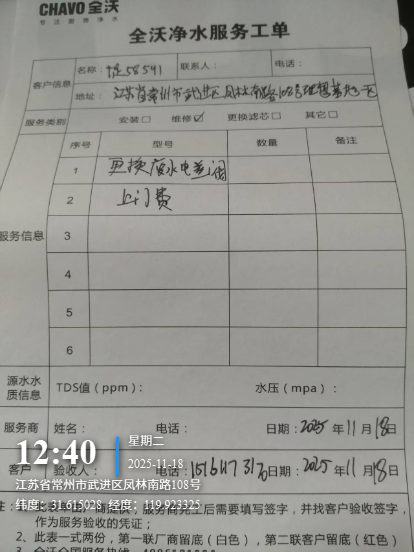 CHAVO全沃
专注服务净水
全沃净水服务工单
客户信息
名称：
58541
联系人：
电话：
地址：江苏省常州市武进区凤林南路108号
服务类别
安装□ 维修☑ 更换滤芯□ 其它□
服务信息
序号 型号 数量 备注
1 更换废水电磁阀
2 上门费
3
4
5
6
源水水质信息
TDS值（ppm）： 水压（mpa）：
服务商 姓名： 电话： 日期：2025年11月18日
客户 验收人： 电话： 日期：2025年11月18日
12:40
星期二
2025-11-18
江苏省常州市武进区凤林南路108号
纬度：31.615028 经度：119.923325
完工后需要填写签字，并找客户验收签字，
作为服务验收的凭证；
2、此表一式两份，第一联厂商留底（白色），第二联客户留底（红色）